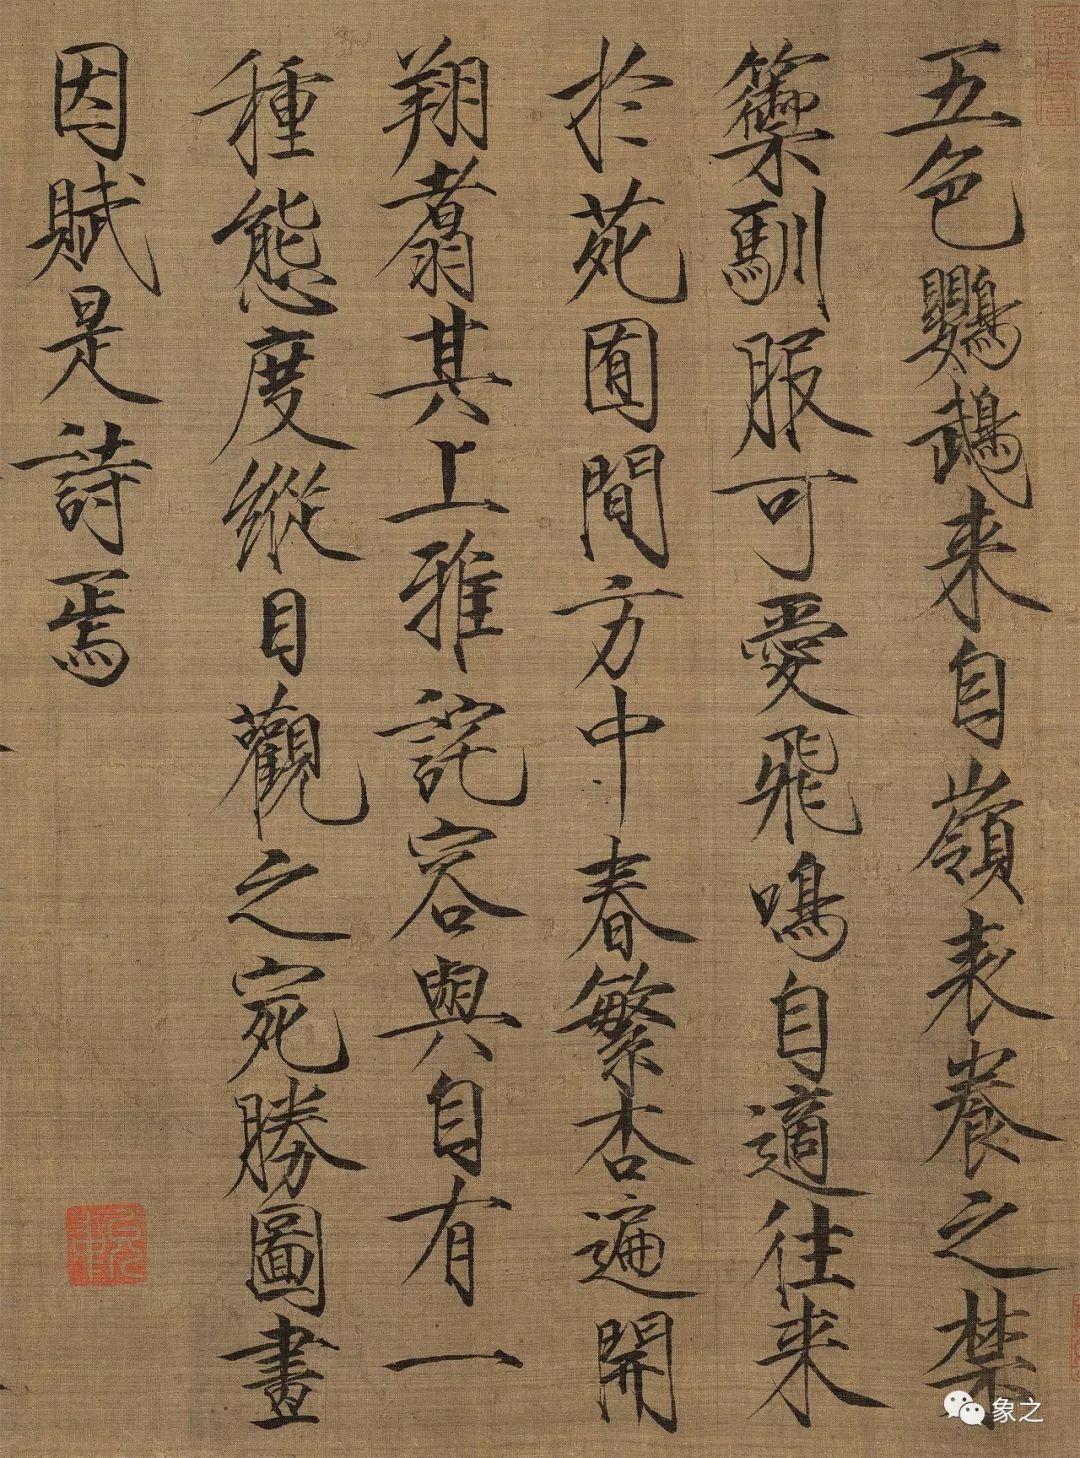 五色鸚鵡来自嶺表養之禁
籞馴服可愛飛鳴自適往来
於苑囿間方中春繁杏遍開
翔翥其上雅詫容與自有一
種態度縱目觀之宛勝圖畫
因賦是詩焉
象之